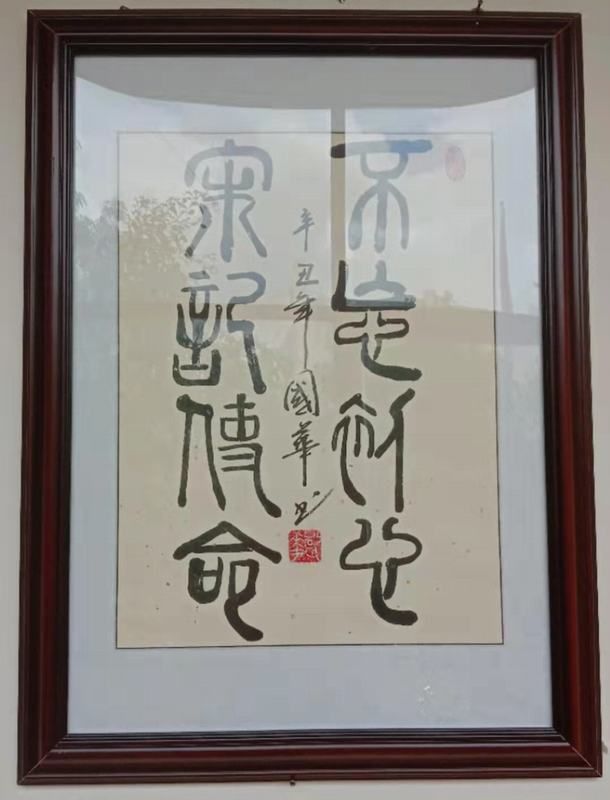 不忘初心
牢記使命
辛丑年國華书